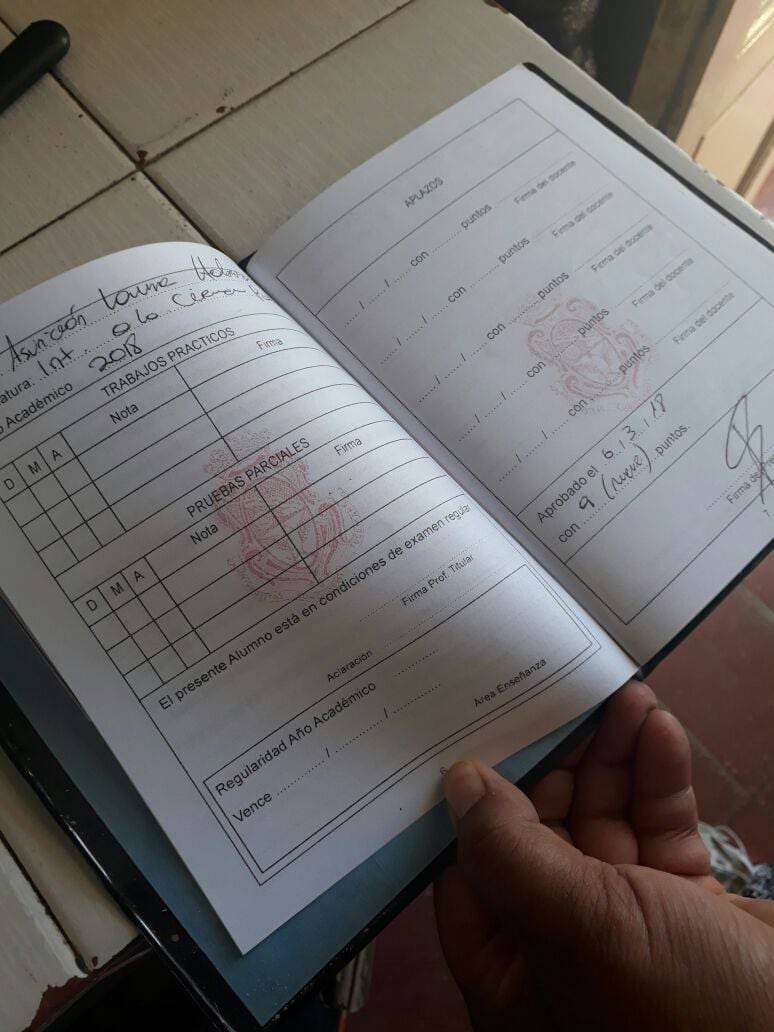 Asunción Laura
atura: Int. a la
o Académico 2018
TRABAJOS PRACTICOS
D M A Nota Firma
PRUEBAS PARCIALES
D M A Nota Firma
El presente Alumno está en condiciones de examen regular
Firma Prof. Titular
Aclaración
Regularidad Año Académico ............
Vence ............ / ............ / ............
Area Enseñanza
6
APLAZOS
...... / ...... / ...... con ......... puntos Firma del docente
...... / ...... / ...... con ......... puntos Firma del docente
...... / ...... / ...... con ......... puntos Firma del docente
...... / ...... / ...... con ......... puntos Firma del docente
...... / ...... / ...... con ......... puntos Firma del docente
Aprobado el 6 / 3 / 18
con 9 (nueve) puntos.
Firma de